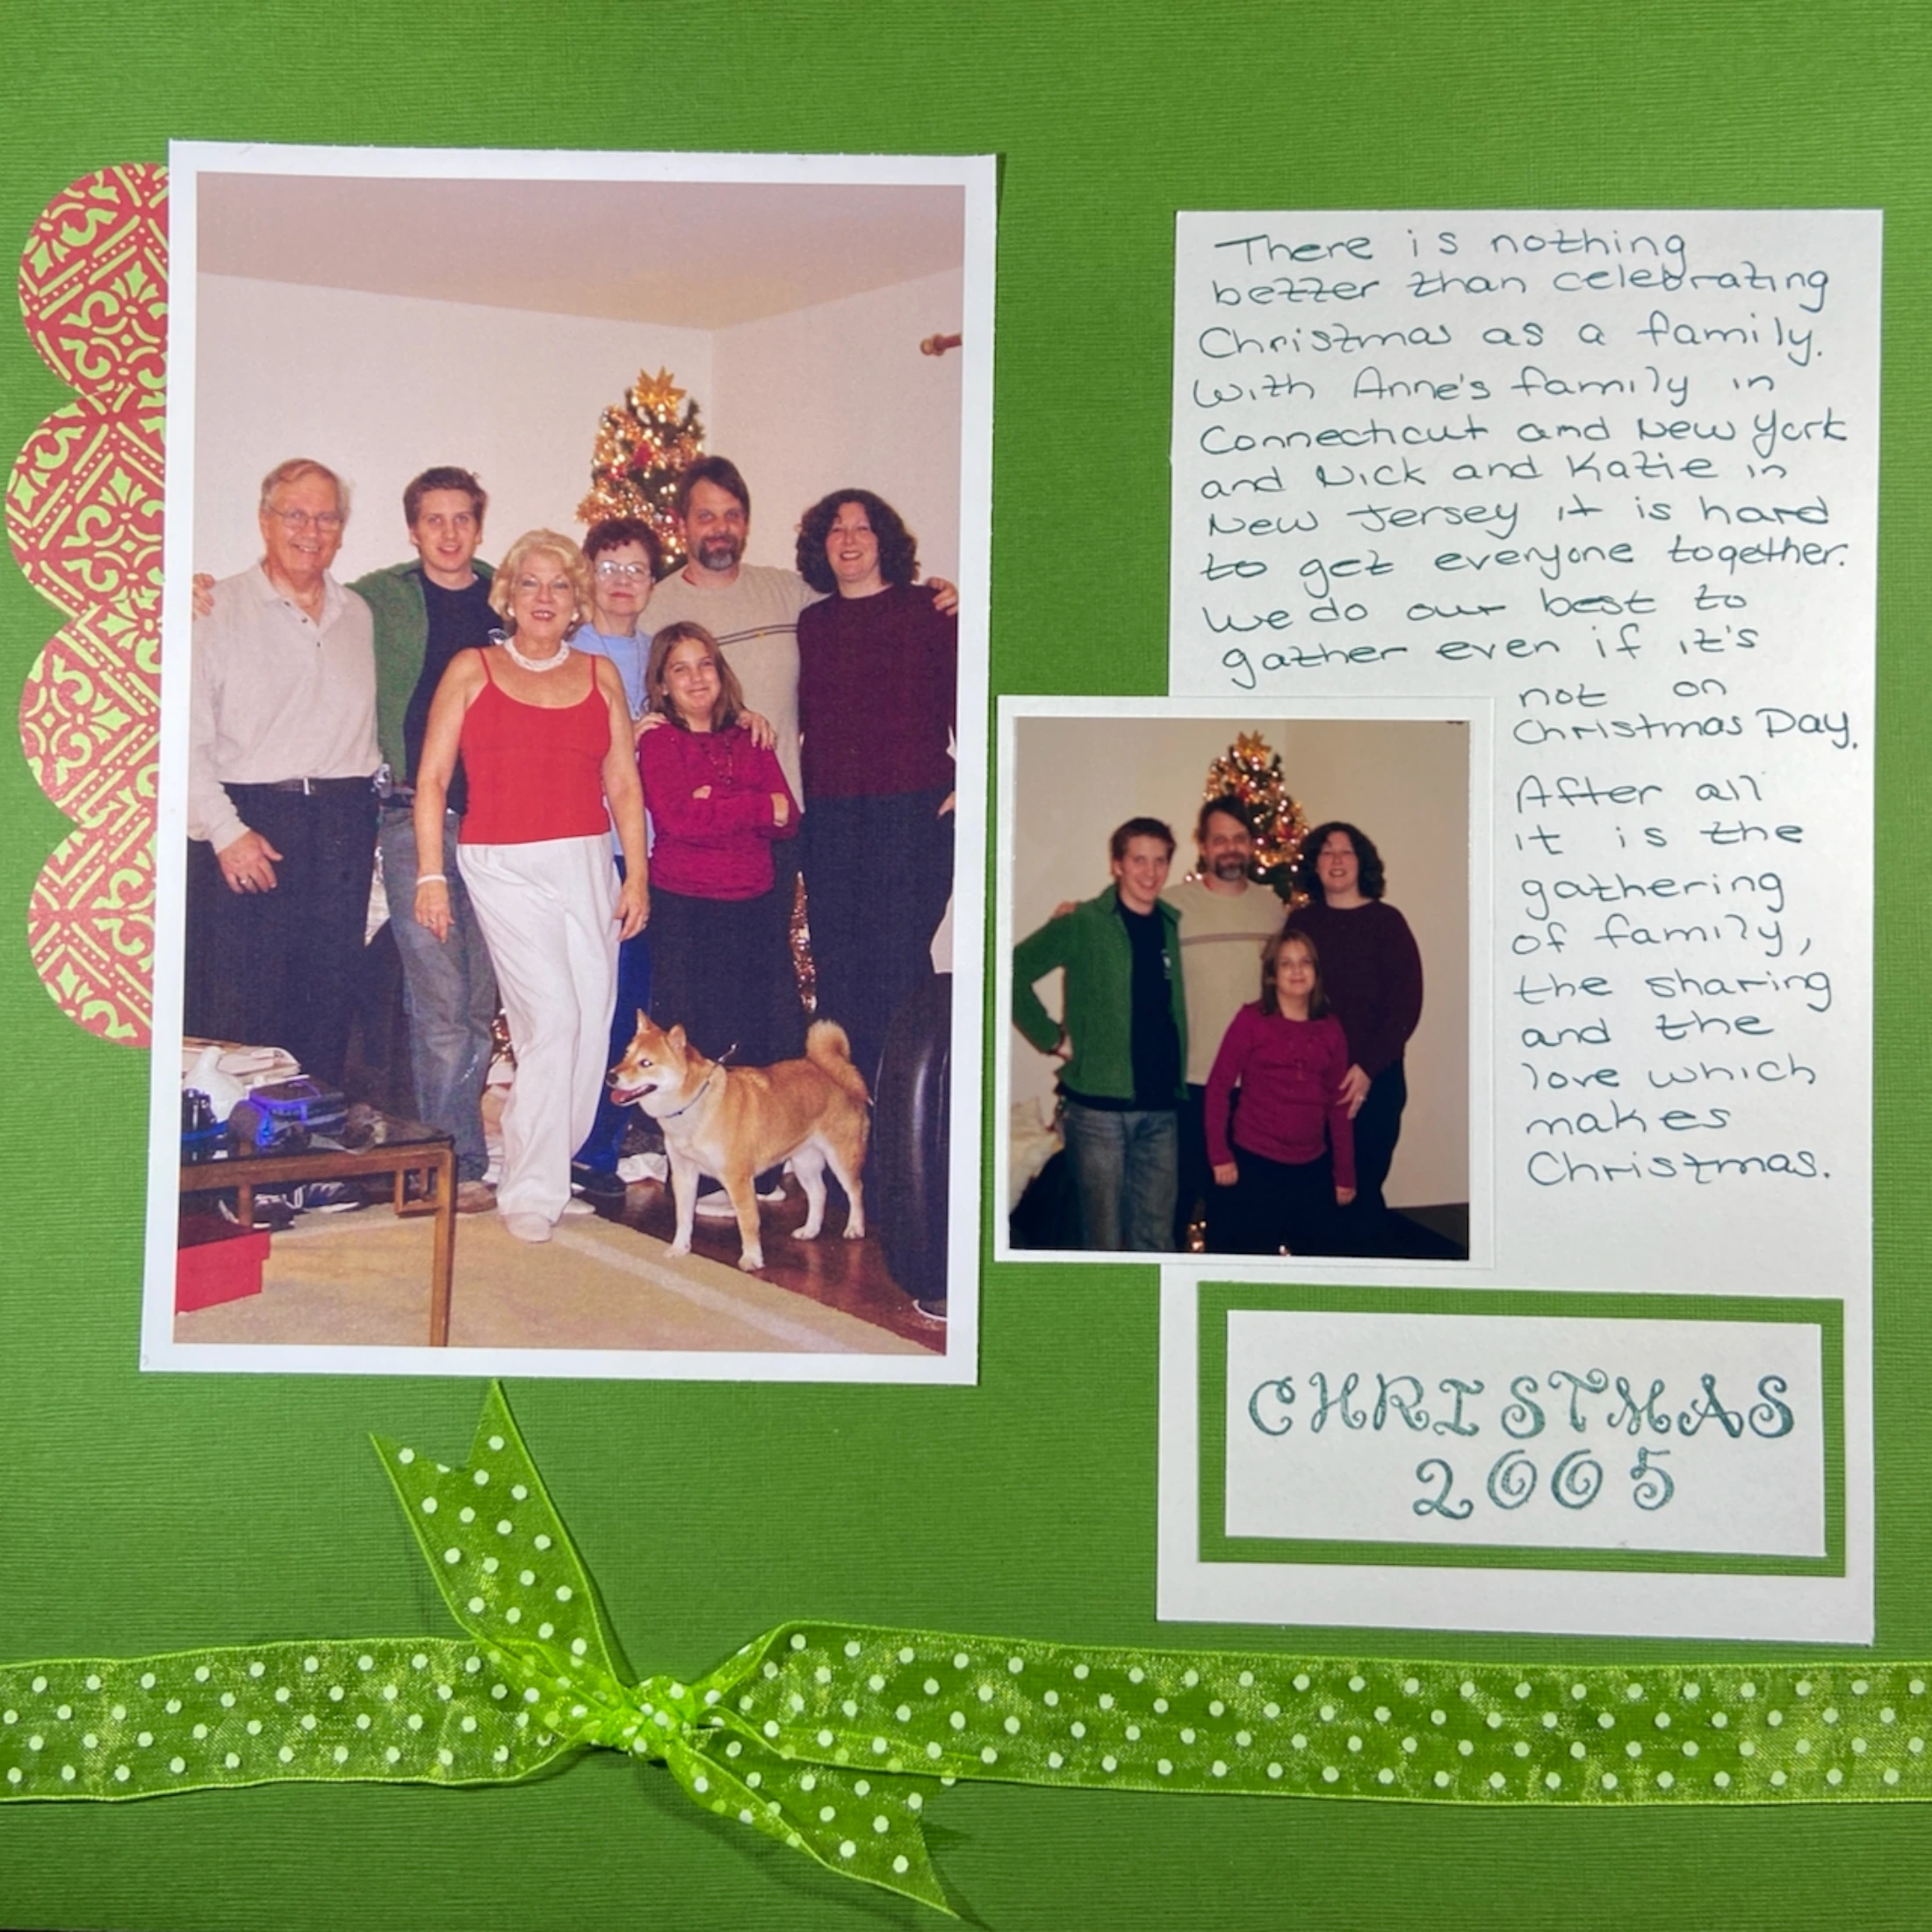 There is nothing
better than celebrating
Christmas as a family.
With Anne's family in
Connecticut and New York
and Nick and Katie in
New Jersey it is hard
to get everyone together.
We do our best to
gather even if it's
not on
Christmas Day.
After all
it is the
gathering
of family,
the sharing
and the
love which
makes
Christmas.
CHRISTMAS
2005